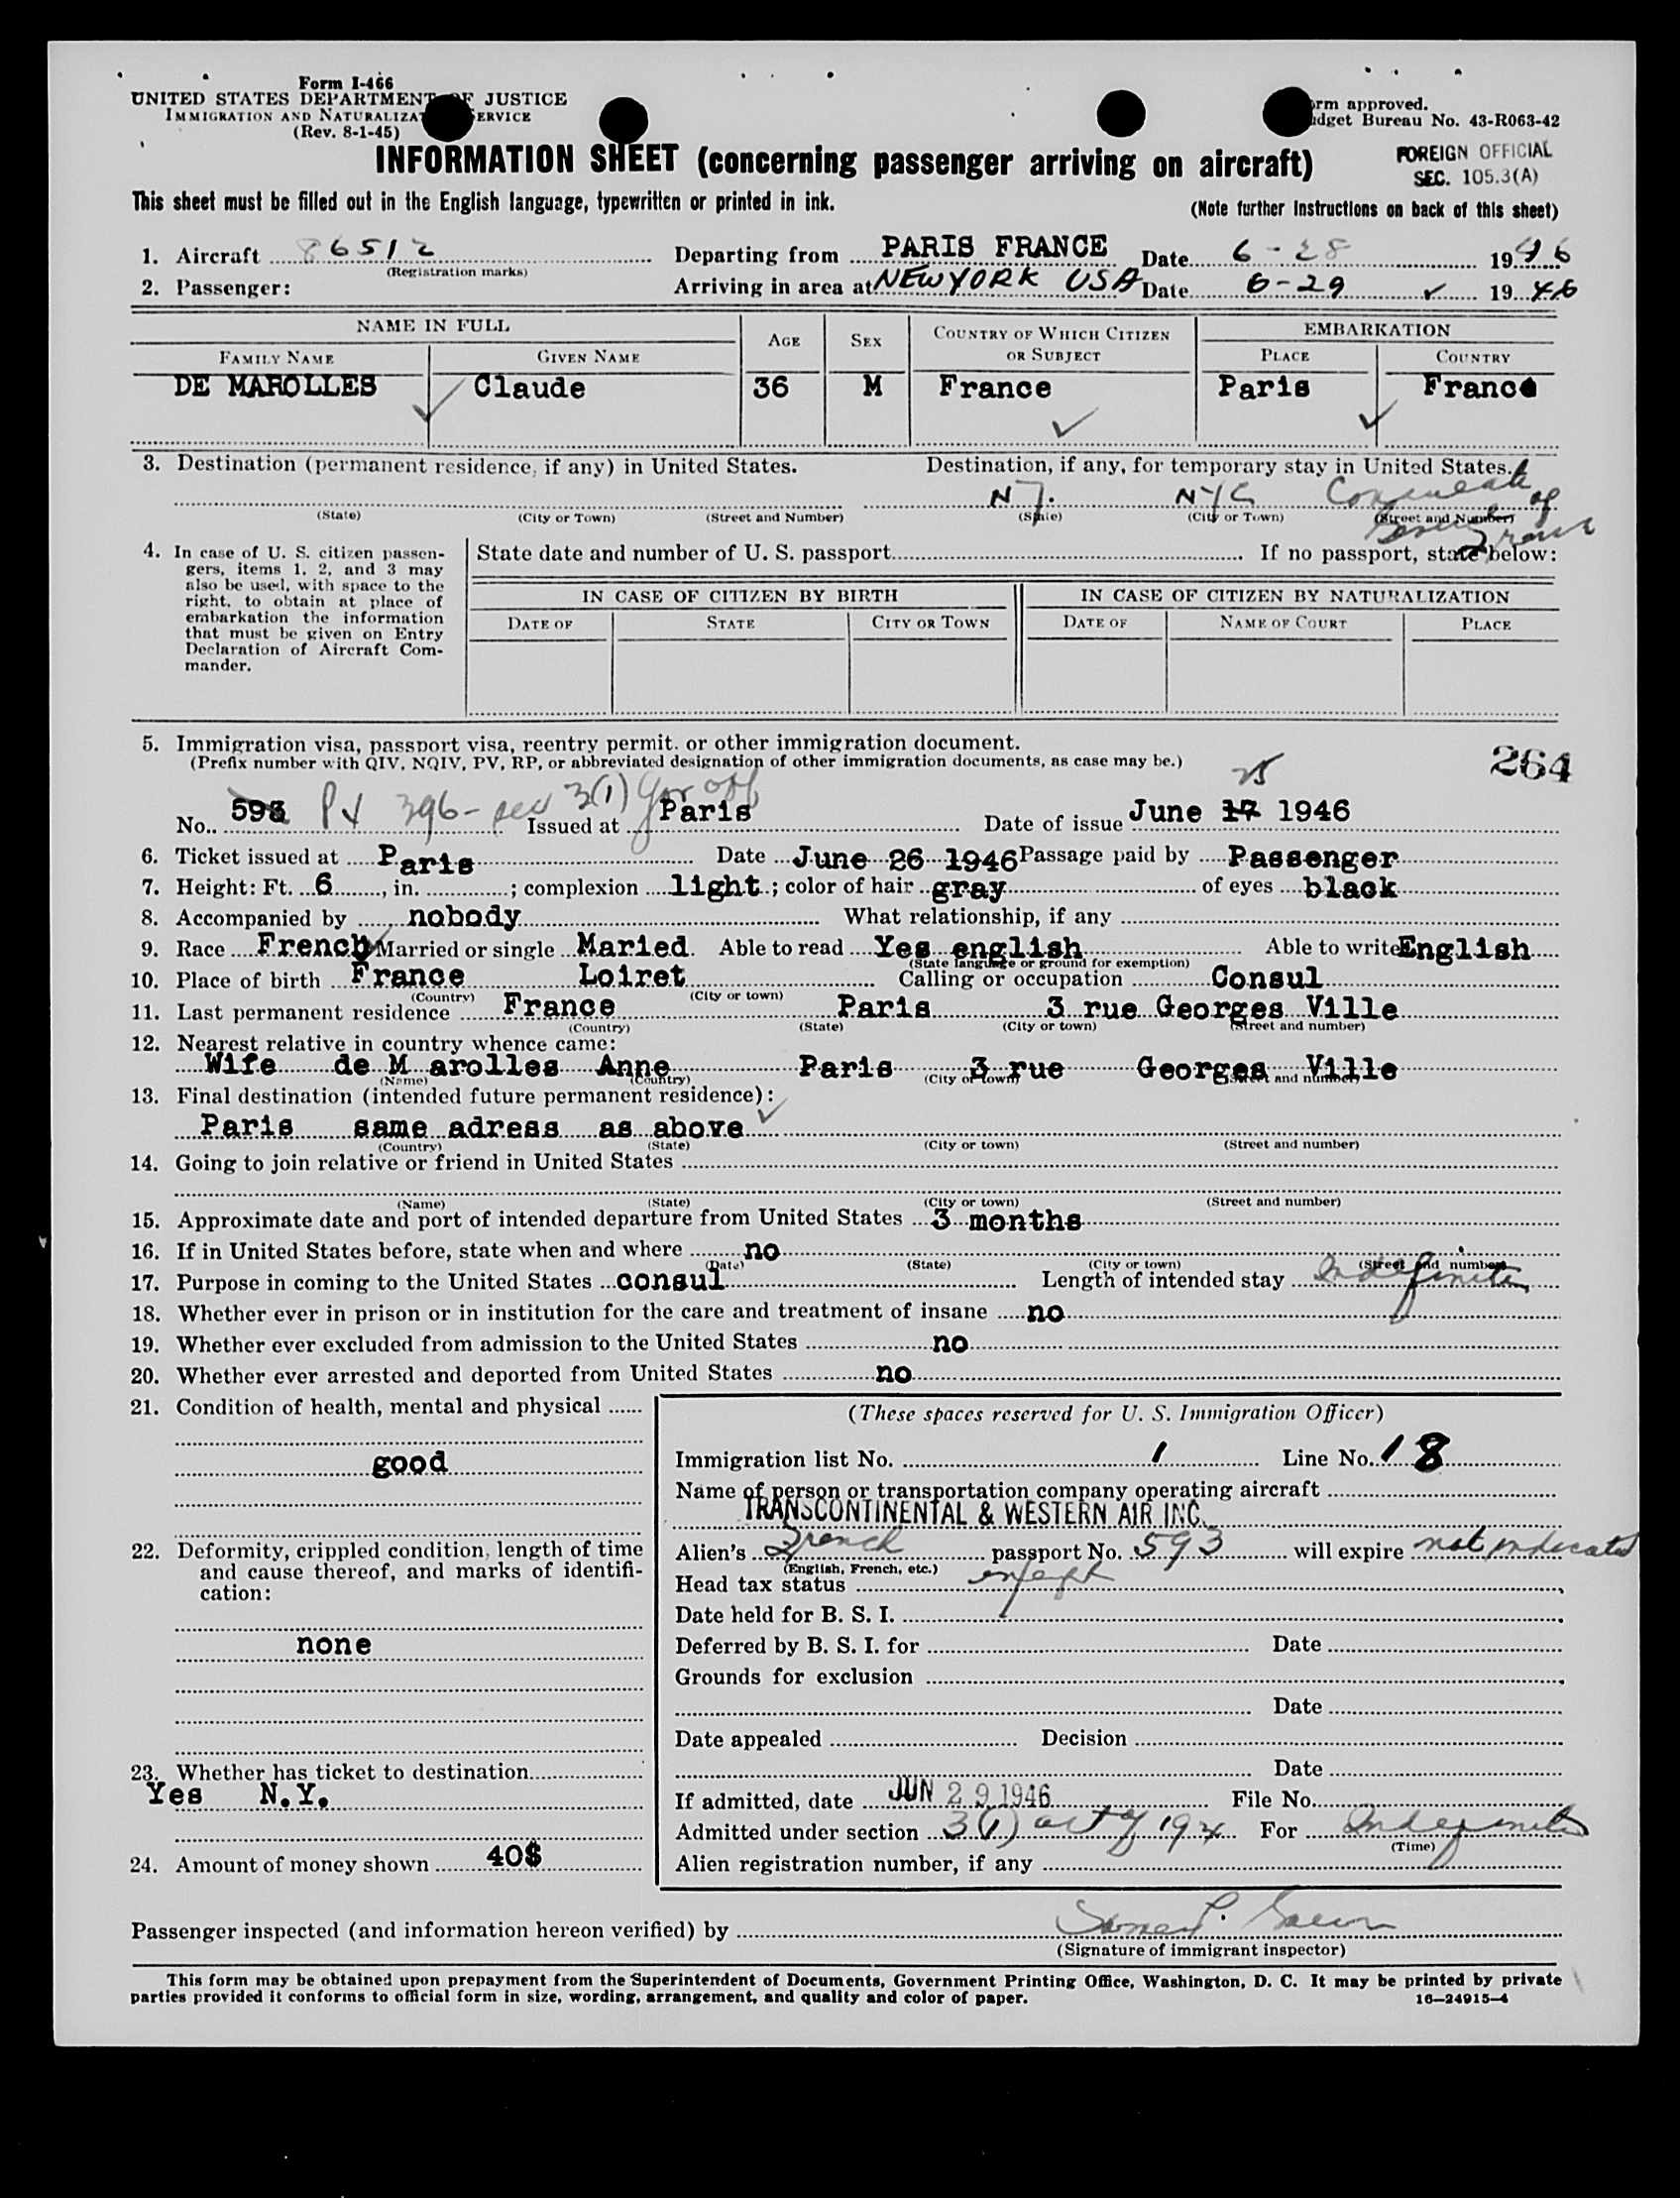 Form I-466
UNITED STATES DEPARTMENT OF JUSTICE
IMMIGRATION AND NATURALIZA SERVICE
(Rev. 8-1-45)
rm approved.
dget Bureau No. 43-R063-42
FOREIGN OFFICIAL
SEC. 105.3(A)
INFORMATION SHEET (concerning passenger arriving on aircraft)
This sheet must be filled out in the English language, typewritten or printed in ink.
(Note further instructions on back of this sheet)
1. Aircraft 86512 Departing from PARIS FRANCE Date 6-28 1946
(Registration marks)
2. Passenger: Arriving in area at NEWYORK USA Date 6-29 ✓ 1946
NAME IN FULL AGE SEX COUNTRY OF WHICH CITIZEN OR SUBJECT EMBARKATION
FAMILY NAME GIVEN NAME PLACE COUNTRY
DE MAROLLES ✓ Claude 36 M France ✓ Paris ✓ France
3. Destination (permanent residence, if any) in United States. Destination, if any, for temporary stay in United States.
N.Y. NYC Consulate of
(State) (City or Town) (Street and Number) (State) (City or Town) (Street and Number)
France
4. In case of U. S. citizen passengers, items 1, 2, and 3 may also be used, with space to the right, to obtain at place of embarkation the information that must be given on Entry Declaration of Aircraft Commander.
State date and number of U. S. passport If no passport, state below:
IN CASE OF CITIZEN BY BIRTH IN CASE OF CITIZEN BY NATURALIZATION
DATE OF STATE CITY OR TOWN DATE OF NAME OF COURT PLACE
5. Immigration visa, passport visa, reentry permit, or other immigration document.
(Prefix number with QIV, NQIV, PV, RP, or abbreviated designation of other immigration documents, as case may be.)
264
25
No. 593 PV 396 - sec 3(1) Gov off Issued at Paris Date of issue June 17 1946
6. Ticket issued at Paris Date June 26 1946 Passage paid by Passenger
7. Height: Ft. 6, in. ; complexion light; color of hair gray of eyes black
8. Accompanied by nobody What relationship, if any
9. Race French ✓ Married or single Maried Able to read Yes english Able to write English
(State language or ground for exemption)
10. Place of birth France Loiret Calling or occupation Consul
(Country) (City or town)
11. Last permanent residence France Paris 3 rue Georges Ville
(Country) (State) (City or town) (Street and number)
12. Nearest relative in country whence came:
Wife de M arolles Anne Paris 3 rue Georges Ville
(Name) (Country) (City or town) (Street and number)
13. Final destination (intended future permanent residence): ✓
Paris same adress as above
(Country) (State) (City or town) (Street and number)
14. Going to join relative or friend in United States
(Name) (State) (City or town) (Street and number)
15. Approximate date and port of intended departure from United States 3 months
16. If in United States before, state when and where no
(Date) (State) (City or town) (Street and number)
17. Purpose in coming to the United States consul Length of intended stay Indefinite
18. Whether ever in prison or in institution for the care and treatment of insane no
19. Whether ever excluded from admission to the United States no
20. Whether ever arrested and deported from United States no
21. Condition of health, mental and physical
good
22. Deformity, crippled condition, length of time and cause thereof, and marks of identification:
none
23. Whether has ticket to destination
Yes N.Y.
24. Amount of money shown 40$
(These spaces reserved for U. S. Immigration Officer)
Immigration list No. 1 Line No. 18
Name of person or transportation company operating aircraft
TRANSCONTINENTAL & WESTERN AIR INC.
Alien's French passport No. 593 will expire not indicated
(English, French, etc.)
Head tax status exempt
Date held for B. S. I.
Deferred by B. S. I. for Date
Grounds for exclusion
Date
Date appealed Decision
Date
If admitted, date JUN 29 1946 File No.
Admitted under section 3(1) act of 1924 For Indefinite
(Time)
Alien registration number, if any
Passenger inspected (and information hereon verified) by
(Signature of immigrant inspector)
This form may be obtained upon prepayment from the Superintendent of Documents, Government Printing Office, Washington, D. C. It may be printed by private
parties provided it conforms to official form in size, wording, arrangement, and quality and color of paper. 16—24915-4